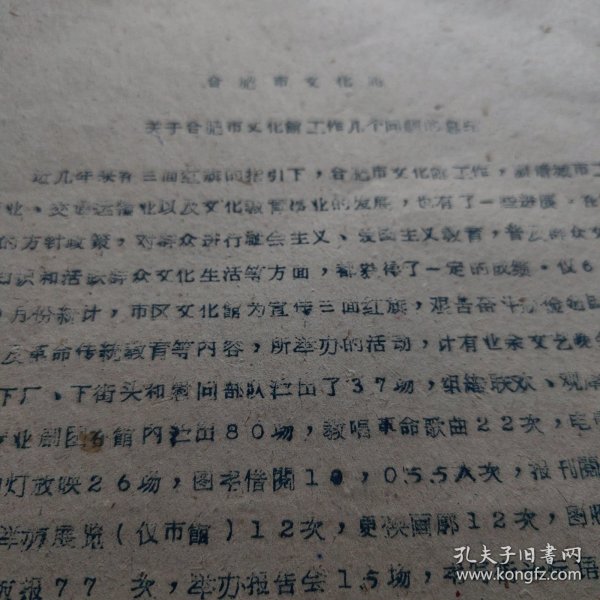 合肥市文化局
关于合肥市文化館工作几个問題的总結
近几年来在三面红旗的指引下，合肥市文化館工作，
业、交通运输业以及文化教育事业的发展，也有了一些进展。在
的方针政策，对群众进行社会主义、爱国主义教育，普及群众文
知识和活跃群众文化生活等方面，都获得了一定的成绩。仅6
月份統计，市区文化館为宣传三面红旗，艰苦奋斗勤俭建国
及革命传統教育等内容，所举办的活动，计有业余文艺
下厂、下街头和慰问部队演出了37场，组織联欢、观摩
专业剧团在館内演出80场，教唱革命歌曲22次，电
幻灯放映26场，图书借閱10，055人次，报刊閱
举办展览（仅市館）12次，更换画廊12次，图
板报77次，举办报告会15场，
孔夫子旧书网
www.kongfz.com